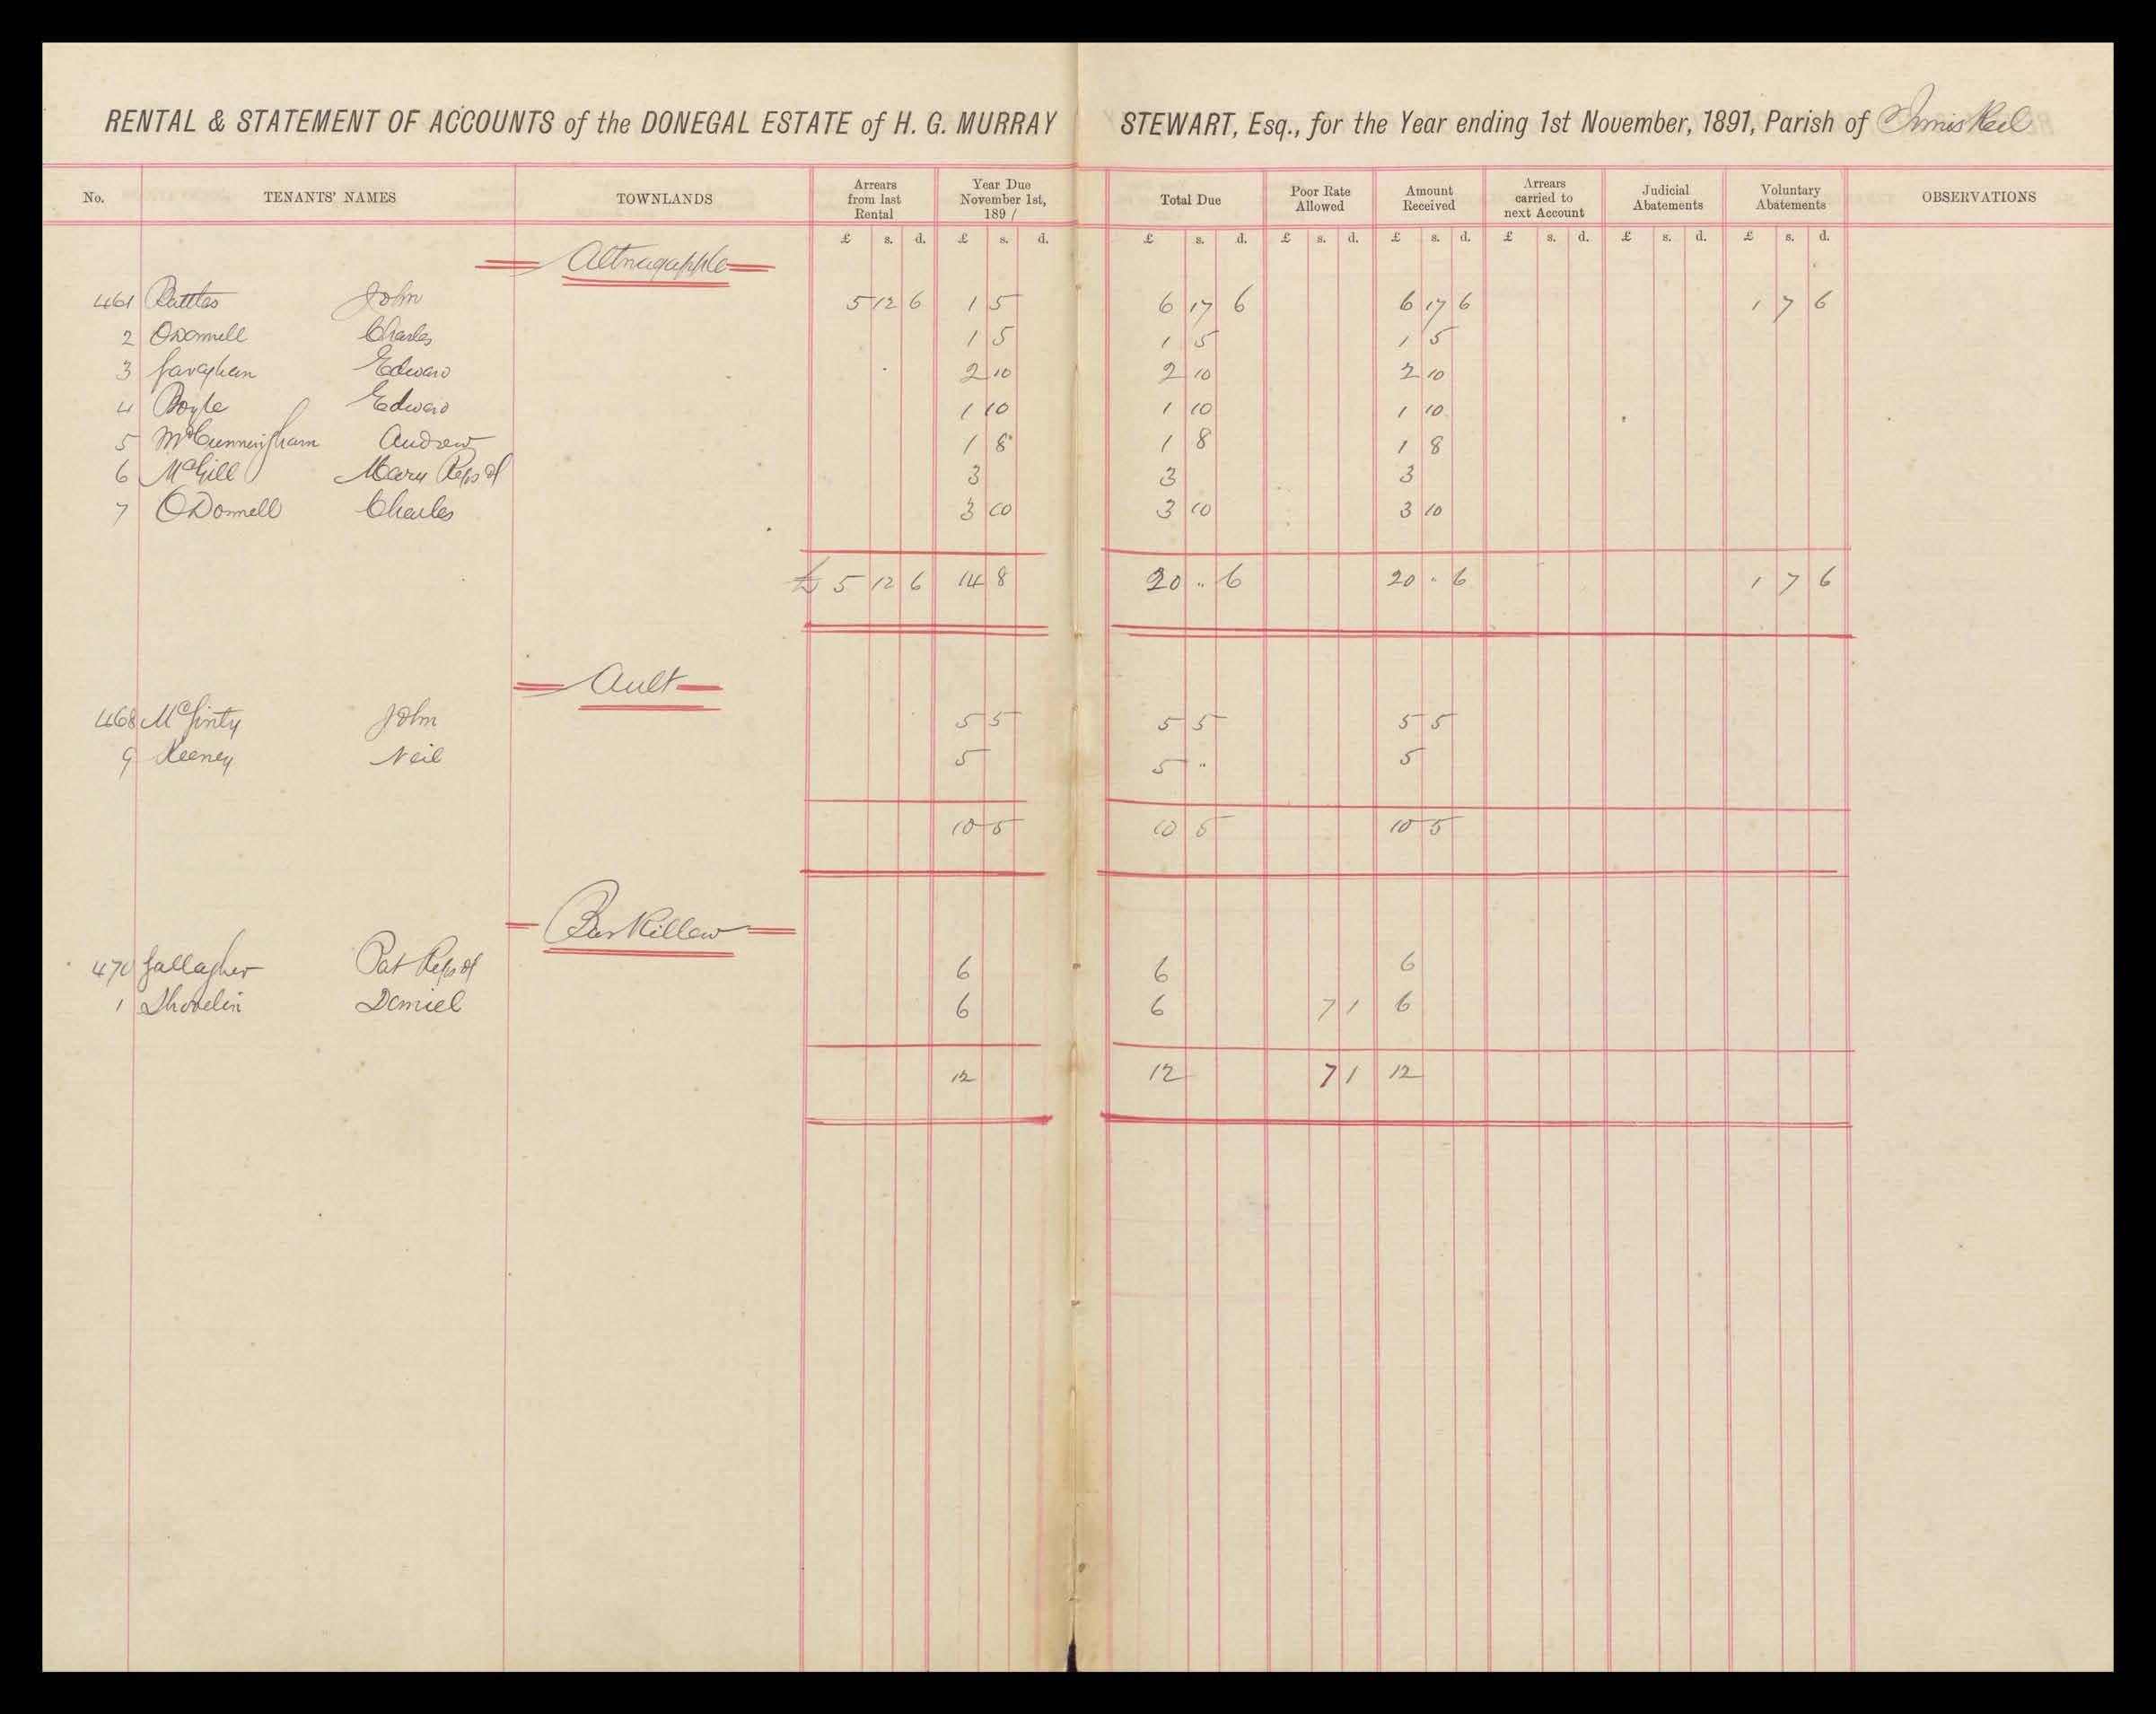 RENTAL & STATEMENT OF ACCOUNTS of the DONEGAL ESTATE of H. G. MURRAY STEWART, Esq., for the Year ending 1st November, 1891, Parish of Inniskeel
No. TENANTS' NAMES TOWNLANDS Arrears from last Rental Year Due November 1st, 1891 Total Due Poor Rate Allowed Amount Received Arrears carried to next Account Judicial Abatements Voluntary Abatements OBSERVATIONS
£ s. d. £ s. d. £ s. d. £ s. d. £ s. d. £ s. d. £ s. d. £ s. d.
Altnagapple
461 Battles John 5 12 6 1 5 6 17 6 6 17 6 1 7 6
2 ODonnell Charles 1 5 1 5 1 5
3 Gavaghan Edward 2 10 2 10 2 10
4 Boyle Edward 1 10 1 10 1 10
5 McCunningham Andrew 1 8 1 8 1 8
6 McGill Mary Reps of 3 3 3
7 ODonnell Charles 3 10 3 10 3 10
£ 5 12 6 14 8 20 .. 6 20 .. 6 1 7 6
Ault
468 McGinty John 5 5 5 5 5 5
9 Keeney Neil 5 5 .. 5
10 5 10 5 10 5
Barkillew
470 Gallagher Pat Reps of 6 6 6
1 Shovelin Daniel 6 6 7 1 6
12 12 7 1 12